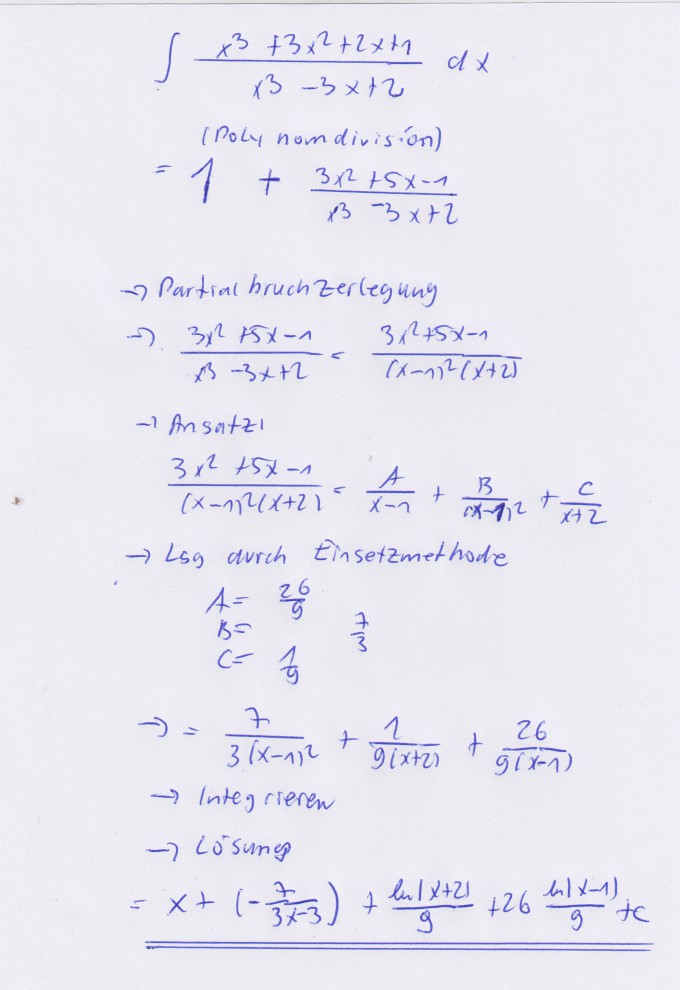 ∫ (x³ + 3x² + 2x + 1)/(x³ - 3x + 2) dx
(Polynomdivision)
= 1 + (3x² + 5x - 1)/(x³ - 3x + 2)
→ Partialbruchzerlegung
→ (3x² + 5x - 1)/(x³ - 3x + 2) = (3x² + 5x - 1)/((x-1)²(x+2))
→ Ansatz:
(3x² + 5x - 1)/((x-1)²(x+2)) = A/(x-1) + B/(x-1)² + C/(x+2)
→ Lsg durch Einsetzmethode
A = 26/9
B = 7/3
C = 1/9
→ = 7/(3(x-1)²) + 1/(9(x+2)) + 26/(9(x-1))
→ Integrieren
→ Lösung
= x + (- 7/(3x-3)) + ln|x+2|/9 + 26 ln|x-1|/9 + c